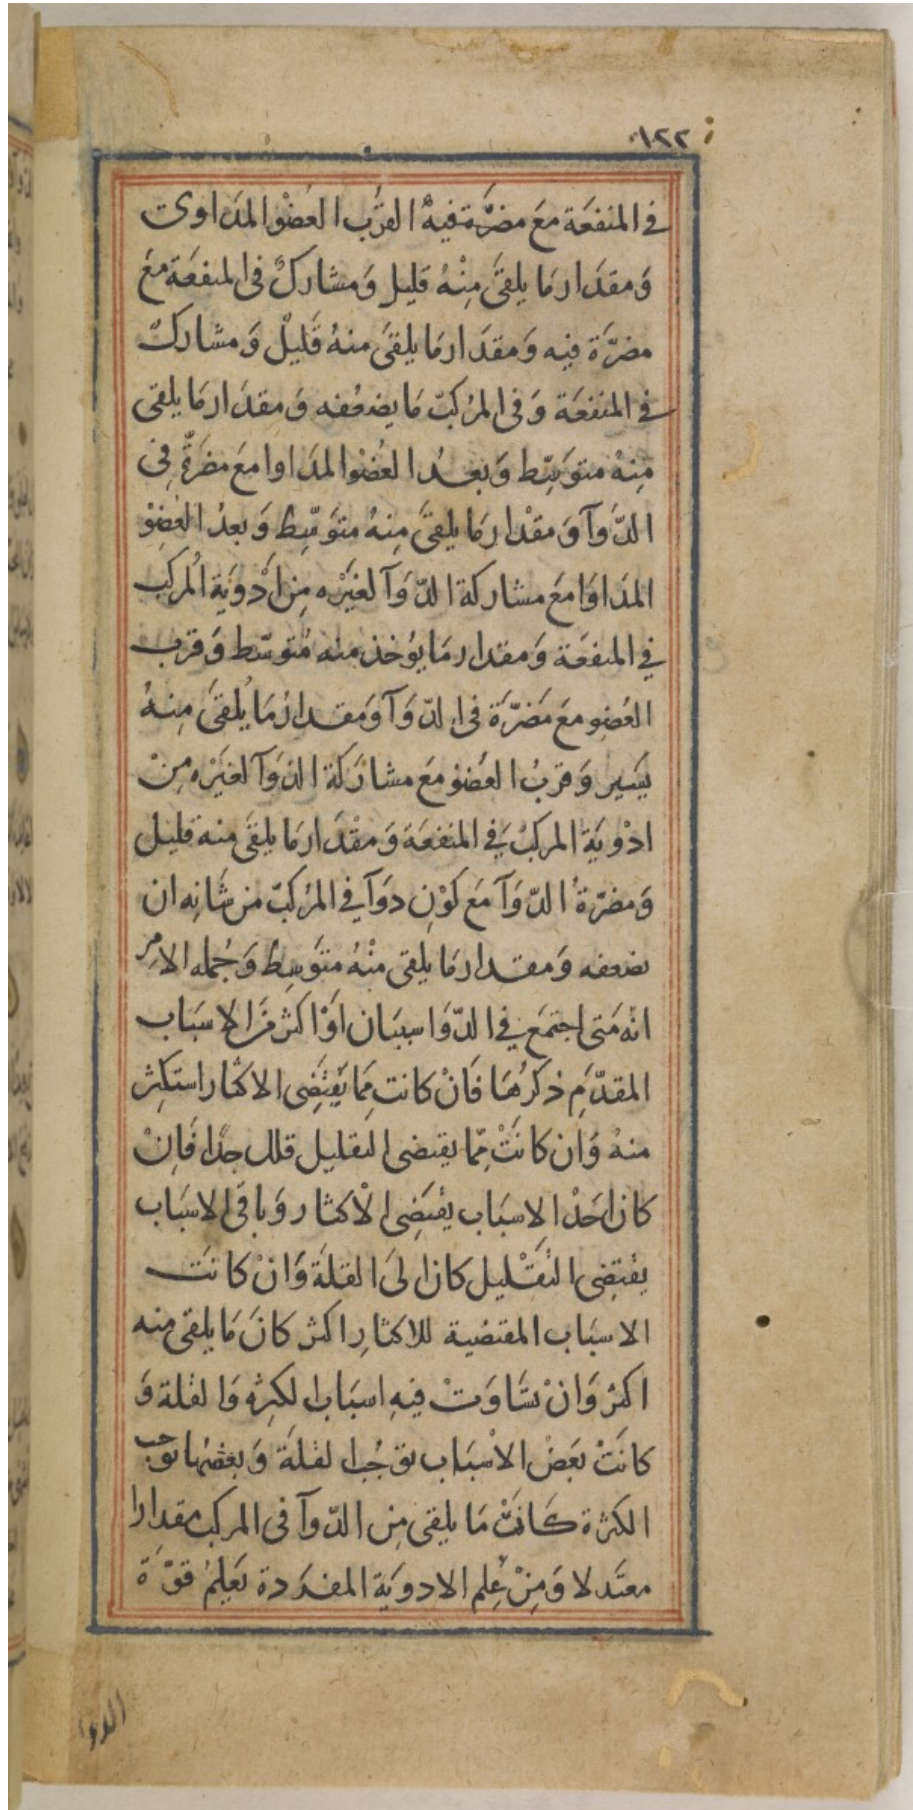 ١٢٢
في المنفعة مع مضرّة فيه القرب العضو المداوى
ومقدار ما يلقى منه قليل ومشارك في المنفعة مع
مضرّة فيه ومقدار ما يلقى منه قليل ومشارك
في المنفعة وفى المركب ما يضعفه ومقدار ما يلقى
منه متوسّط وبعد العضو المداوا مع مضرّة في
الدّوآ ومقدار ما يلقى منه متوسّط وبعد العضو
المداوا مع مشاركة الدّوآ لغيره من أدوية المركب
في المنفعة ومقدار ما يؤخذ منه متوسّط وقرب
العضو مع مضرّة في الدّوآ ومقدار ما يلقى منه
يسير وقرب العضو مع مشاركة الدوآ لغيره من
ادوية المركب في المنفعة ومقدار ما يلقى منه قليل
ومضرّة الدّوآ مع كون دوآ في المركب من شانه ان
يضعفه ومقدار ما يلقى منه متوسط وجمله الامر
انه متى اجتمع في الدّوا سببان او اكثر من الاسباب
المقدّم ذكرها فان كانت مما يقتضى الاكثار استكثر
منه وان كانت ممّا يقتضى التقليل قلل جدا فان
كان احد الاسباب يقتضى الاكثار وباقى الاسباب
يقتضى التقليل كان الى القلة وان كانت
الاسباب المقتضية للاكثار اكثر كان ما يلقى منه
اكثر وان تساوت فيه اسباب الكثرة والقلة و
كانت بعض الاسباب توجب القلة وبعضها توجب
الكثرة كانت ما يلقى من الدّوآ في المركب مقدارا
معتدلا ومن علم الادوية المفردة تعلم قوّة
الدوا